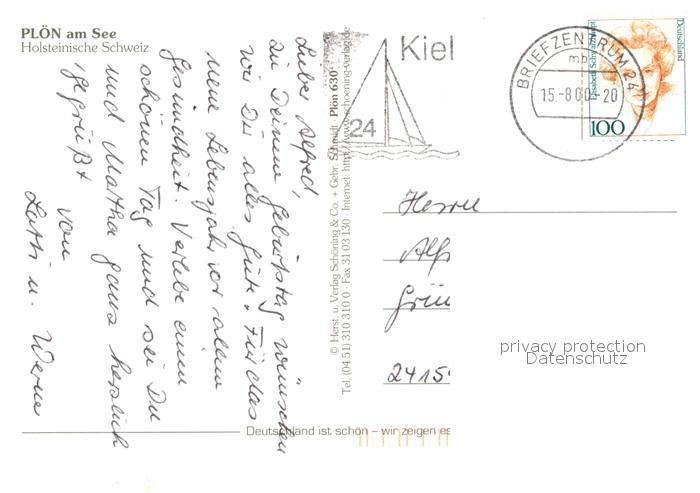 PLÖN am See
Holsteinische Schweiz
Lieber Alfred,
zu Deinem Geburtstag wünschen
wir Dir alles Gute. Für das
neue Lebensjahr vor allem
Gesundheit. Verlebe einen
schönen Tag und sei Du
und Martha ganz herzlich
gegrüßt
von
u. Werner
© Herst. u. Verlag Schöning & Co. + Gebr. Schmidt · Plön 630
Tel. (04 51) 310 310 0 · Fax 31 03 130 · Internet: http://www.schoening-verlag.de
Deutschland ist schön – wir zeigen es
Kiel
24
BRIEFZENTRUM 24
mb
15.-8.00-20
Deutschland
Elisabeth Schwarzhaupt
100
Herrn
Alf
Grün
2415
privacy protection
Datenschutz